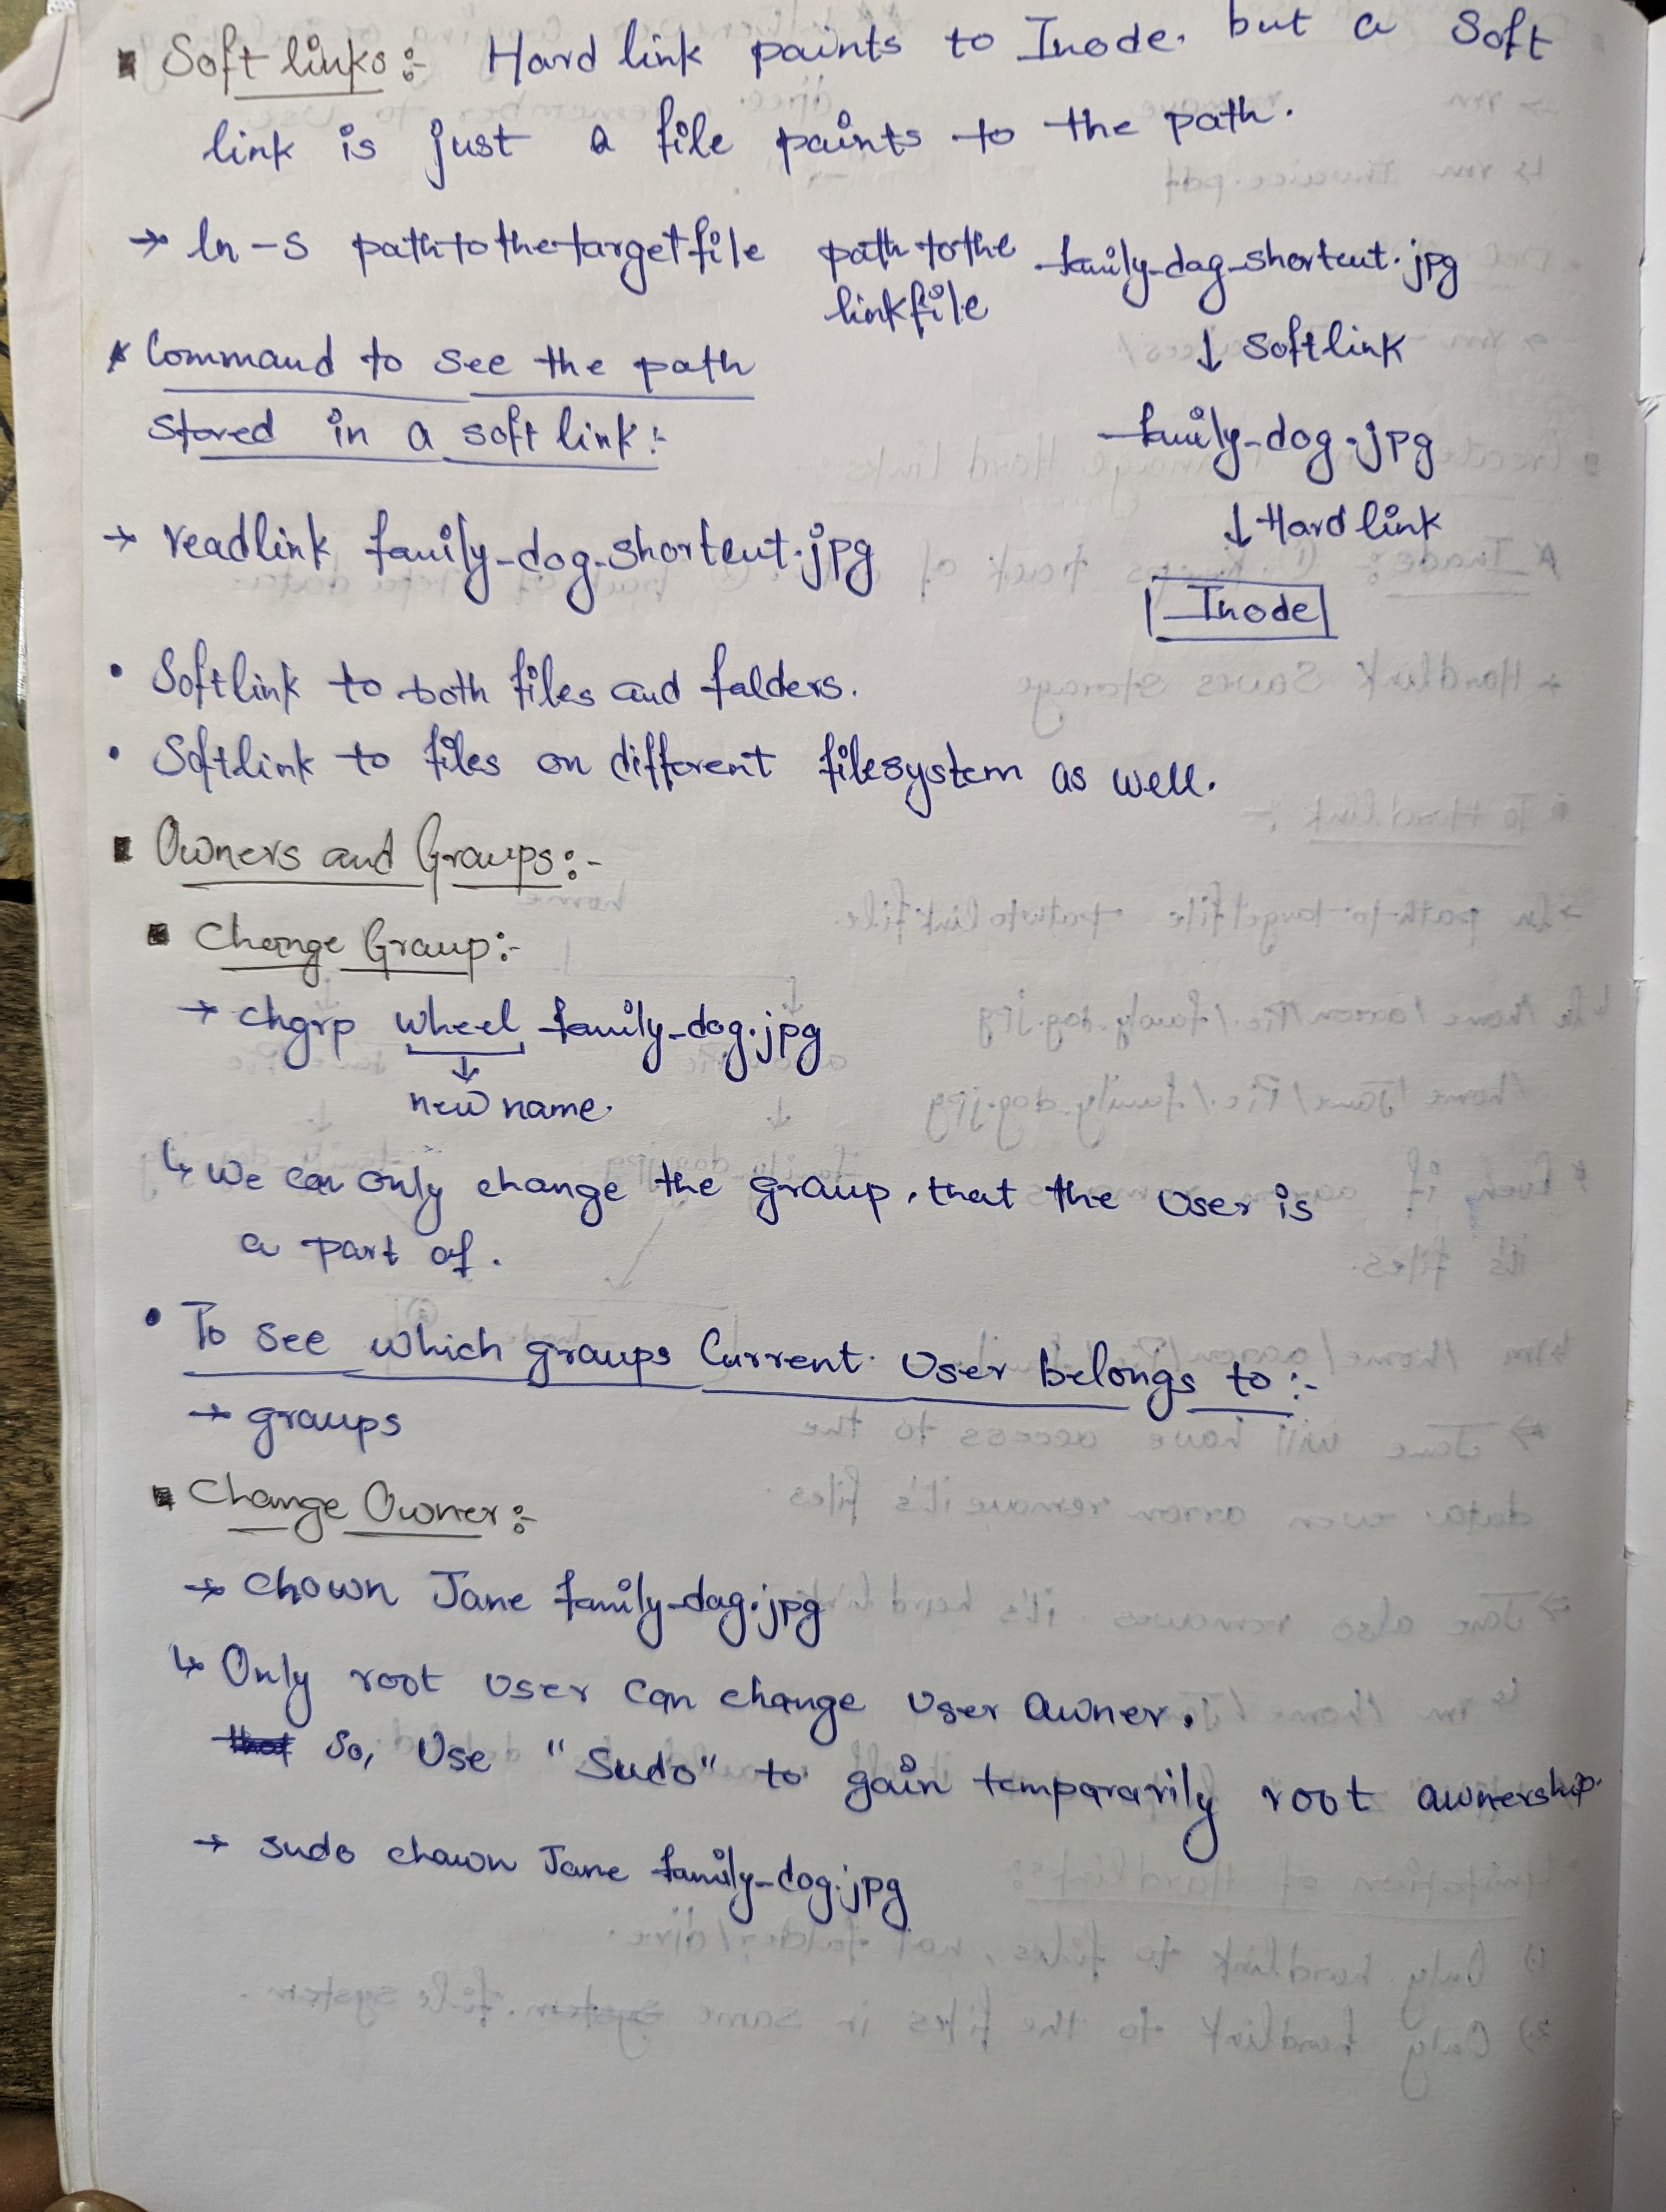 ▪ Soft links:- Hard link points to Inode. but a Soft
link is just a file points to the path.
→ ln -s pathtothetargetfile path tothe linkfile
family-dog-shortcut.jpg
↓ Softlink
family-dog.jpg
↓ Hard link
Inode
* Command to see the path
stored in a soft link:-
→ readlink family-dog-shortcut.jpg
• Softlink to both files and folders.
• Softlink to files on different filesystem as well.
▪ Owners and Groups:-
▪ Change Group:-
→ chgrp wheel family-dog.jpg
↓
new name.
↳ We can only change the group, that the user is
a part of.
• To see which groups Current User belongs to:-
→ groups
▪ Change Owner:-
→ chown Jane family-dog.jpg
↳ Only root user can change user owner.
So, Use "Sudo" to gain temporarily root ownership.
→ sudo chown Jane family-dog.jpg